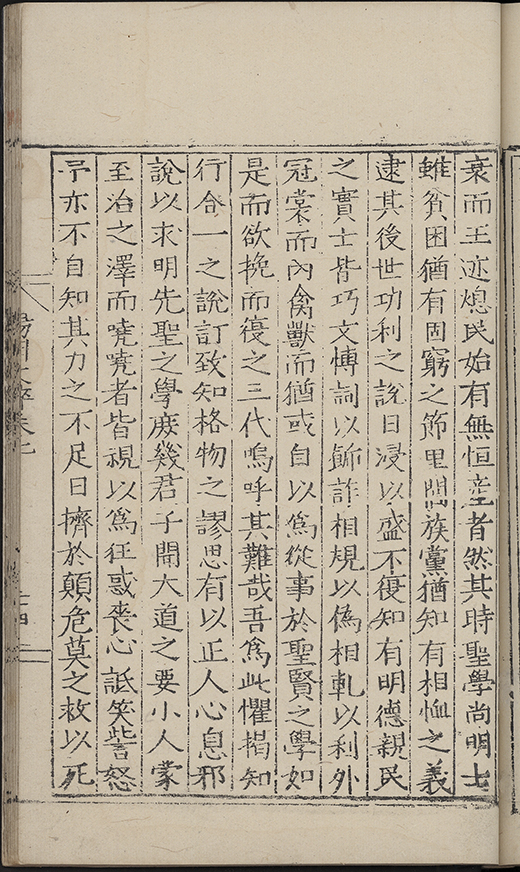 衰而王迹熄民始有無恒產者然其時聖學尚明士
雖貧困猶有固窮之節里閭族黨猶知有相恤之義
逮其後世功利之說日浸以盛不復知有明德親民
之實士皆巧文博詞以飾詐相規以僞相軋以利外
冠裳而內禽獸而猶或自以爲從事於聖賢之學如
是而欲挽而復之三代嗚呼其難哉吾爲此懼揭知
行合一之說訂致知格物之謬思有以正人心息邪
說以求明先聖之學庶幾君子聞大道之要小人蒙
至治之澤而嘵嘵者皆視以爲狂惑喪心詆笑訾怒
予亦不自知其力之不足日擠於顛危莫之救以死
陽明文